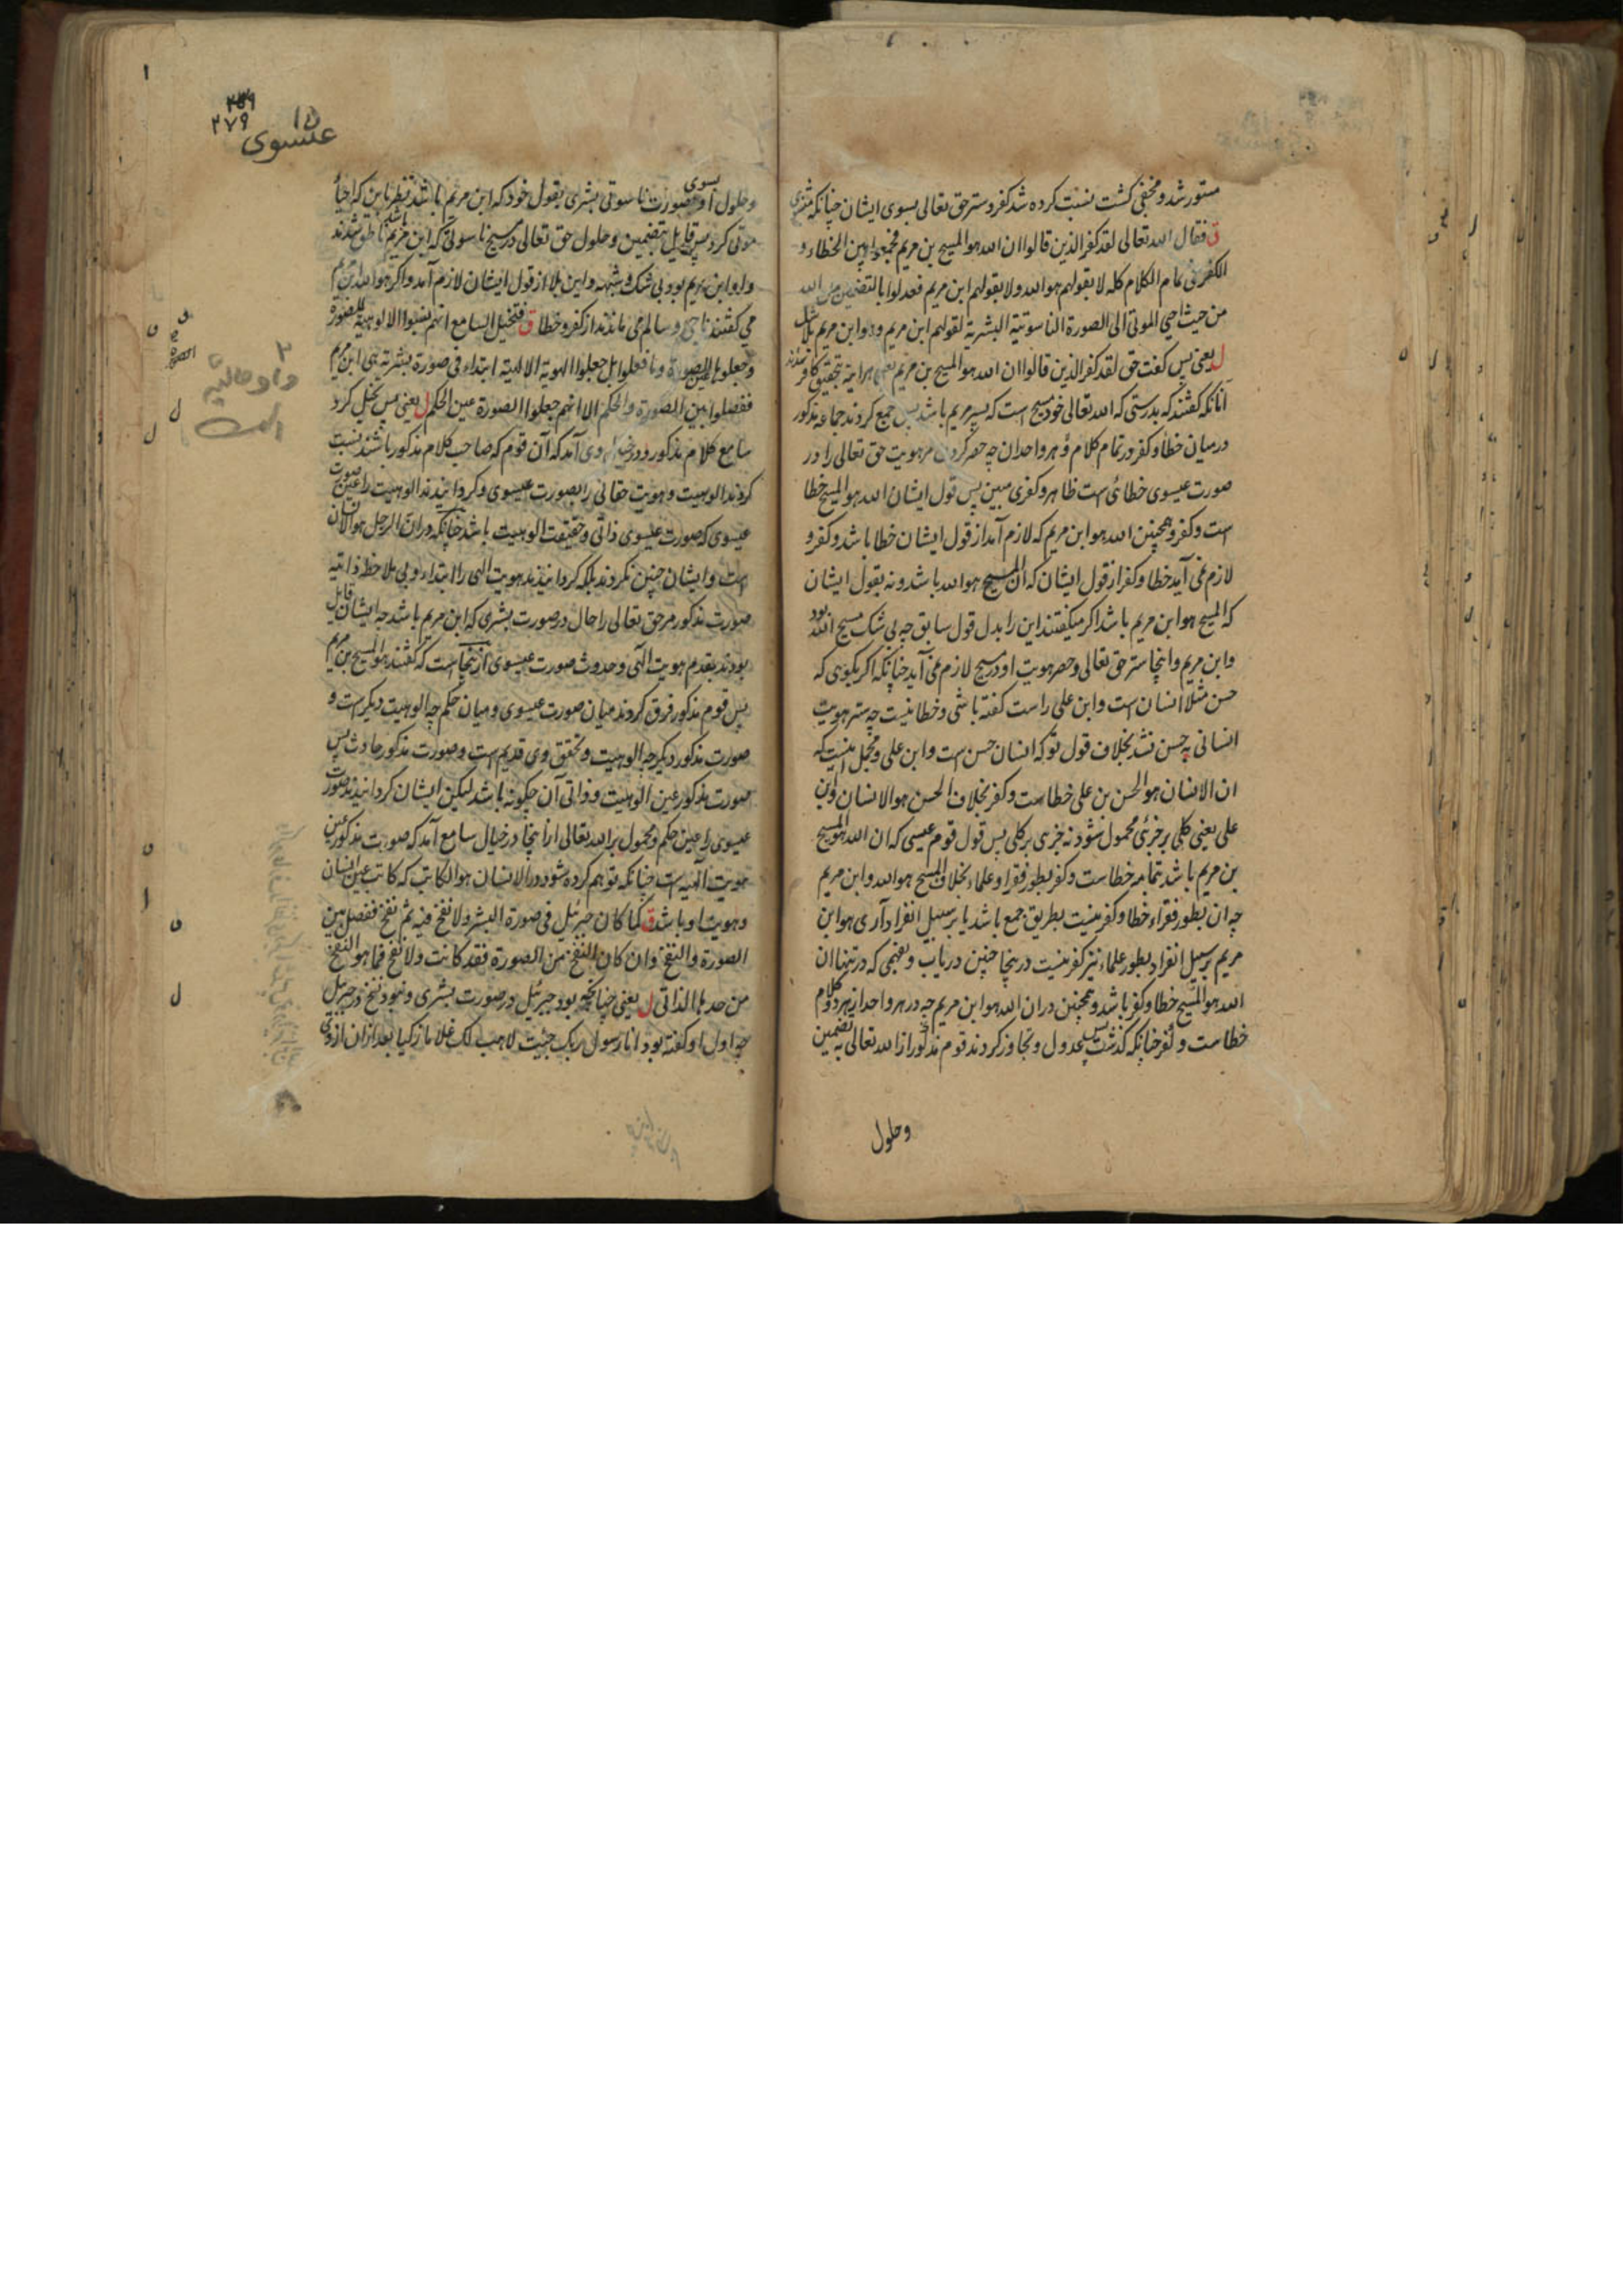 مستور شد و مخفی کشت نسبت کرده شد کفر و ستر حق تعالی بسوی ایشان چنانکه
ق فقال الله تعالی لقد کفر الذین قالوا ان الله هو المسیح بن مریم فجمعوا بین الخطاء و
الکفر فی تمام الکلام کله لا بقولهم هو الله ولا بقولهم ابن مریم فعدلوا بالتضمین من الله
من حیث احیی الموتی الی الصورة الناسوتیة البشریة لقولهم ابن مریم وهو ابن مریم بلا شک
ل یعنی پس کفت حق لقد کفر الذین قالوا ان الله هو المسیح بن مریم یعنی هر اینه بتحقیق کافر شدند
آنانکه کفتند که بدرستی که الله تعالی خود مسیح است که پسر مریم باشد پس جمع کردند جماعه مذکور
درمیان خطا و کفر در تمام کلام و هر واحد ان چه حصر کردن مر هویت حق تعالی را در
صورت عیسوی خطائی است ظاهر و کفری مبین پس قول ایشان الله هو المسیح خطا
است و کفر و همچنین الله هو ابن مریم که لازم آمد از قول ایشان خطا باشد و کفر و
لازم نمی آید خطا و کفر از قول ایشان که ان المسیح هو الله باشد و نه بقول ایشان
که المسیح هو ابن مریم باشد اکر میکفتند این را بدل قول سابق چه بی شک مسیح الله بود
و ابن مریم و اینجا ستر حق تعالی و حصر هویت او در مسیح لازم نمی آید چنانکه اکر بکوی که
حسن مثلا انسان است و ابن علی راست کفته باشی و خطا نیست چه ستر هویت
انسانی به حسن نشد بخلاف قول تو که انسان حسن است و ابن علی و مجمل اینست که
ان الانسان هو الحسن بن علی خطاست و کفر بخلاف الحسن هو الانسان و ابن
علی یعنی کلی بر جزئی محمول شود نه جزی بر کلی پس قول قوم عیسی که ان الله هو المسیح
بن مریم باشد بتمامه خطاست و کفر بطور فقرا و علماء بخلاف المسیح هو الله و ابن مریم
چه ان بطور فقراء خطا و کفر نیست بطریق جمع باشد یا بر سبیل انفراد آری هو ابن
مریم بر سبیل انفراد بطور علماء نیز کفر نیست درینجا چنین دریاب و بفهمی که در تنها ان
الله هو المسیح خطا و کفر باشد و همچنین در ان الله هو ابن مریم چه در هر واحد از هر دو کلام
خطاست و کفر چنانکه کذشت پس عدول و تجاوز کردند قوم مذکور از الله تعالی به تضمین
وحلول
۲۷۹
۱۵
عیسوی
وحلول او بسوی صورت ناسوتی بشری بقول خود که ابن مریم باشد بنظر باین که احیاء
موتی کرد پس قایل بتضمین و حلول حق تعالی در مسیح ناسوتی که ابن مریم باشد شدند
و او ابن مریم بود بی شک و شبهه و این بلا از قول ایشان لازم آمد و اکر هو الله ابن مریم
می کفتند ناجی و سالم می ماندند از کفر و خطا ق فتخیل السامع انهم نسبوا الالوهیة للصورة
وجعلوها عین الصورة وما فعلوا بل جعلوا الهویة الالهیة ابتداء فی صورة بشریة هی ابن مریم
ففصلوا بین الصورة والحکم الا انهم جعلوا الصورة عین الحکم ل یعنی پس تخیل کرد
سامع کلام مذکور و در خیال وی آمد که آن قوم که صاحب کلام مذکور باشند نسبت
کردند الوهیت و هویت حقانی را بصورت عیسوی و کردانیدند الوهیت را عین صورت
عیسوی که صورت عیسوی ذاتی و حقیقت الوهیت باشد چنانکه در ان الرجل هو الانسان
است و ایشان چنین نکردند بلکه کردانیدند هویت الهی را ابتداء و بی ملاحظه ذاتیه
صورت مذکور مر حق تعالی را حال در صورت بشری که ابن مریم باشد چه ایشان قایل
بودند بقدم هویت الهی و حدوث صورت عیسوی ازینجا است که کفتند هو المسیح بن مریم
پس قوم مذکور فرق کردند میان صورت عیسوی و میان حکم چه الوهیت دیکر است و
صورت مذکور دیکر چه الوهیت و تحقق وی قدیم است و صورت مذکور حادث پس
صورت مذکور عین الوهیت و ذاتی آن چکونه باشد لیکن ایشان کردانیدند صورت
عیسوی را عین حکم و محمول بر الله تعالی از اینجا در خیال سامع آمد که صورت مذکور عین
هویت الهیه است چنانکه توهم کرده شود در الانسان هو الکاتب که کاتب عین انسان
و هویت او باشد ق کما کان جبرئیل فی صورة البشر ولا نفخ فیه ثم نفخ ففصل بین
الصورة والنفخ وان کان النفخ من الصورة فقد کانت ولا نفخ فما هو النفخ
من حدها الذاتی ل یعنی چنانچه بود جبرئیل در صورت بشری و نبود نفخ در جبرئیل
چه اول او کفته بود انا رسول ربک جئت لاهب لک غلاما زکیا بعد ازان از وی